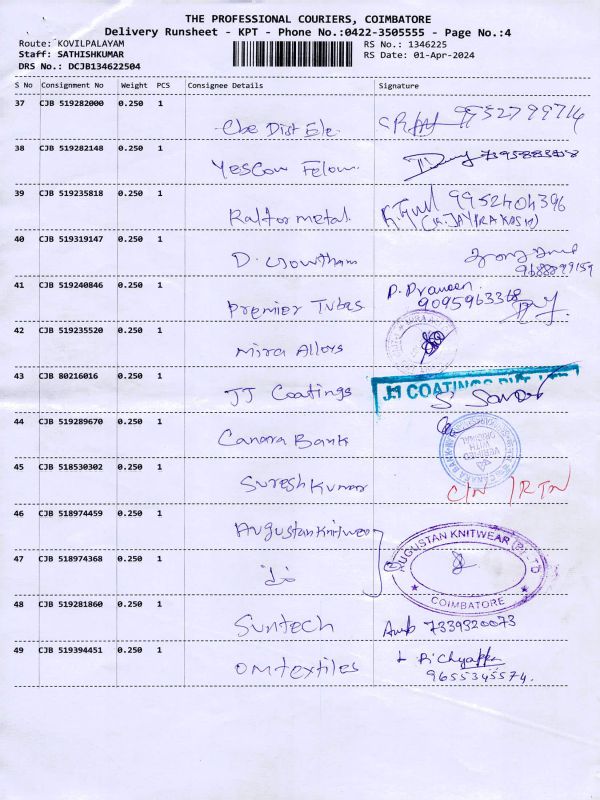 THE PROFESSIONAL COURIERS, COIMBATORE
Delivery Runsheet - KPT - Phone No.:0422-3505555 - Page No.:4
Route: KOVILPALAYAM
Staff: SATHISHKUMAR
DRS No.: DCJB134622504
RS No.: 1346225
RS Date: 01-Apr-2024
S No Consignment No Weight PCS Consignee Details Signature
37 CJB 519282000 0.250 1
Cbe Dist Ele. 9952799714
38 CJB 519282148 0.250 1
Yescow Felow.
39 CJB 519235818 0.250 1
Ralfor metal. 9952404396
(K. JAYAPRAKASH)
40 CJB 519319147 0.250 1
D. Gowtham
9688899159
41 CJB 519240846 0.250 1
Premier Tubes P. Praveen
9095963368
42 CJB 519235520 0.250 1
Mira Alloys
43 CJB 80216016 0.250 1
JJ Coatings JJ COATINGS
44 CJB 519289670 0.250 1
Canara Bank VERIFIED WITH ORIGINAL
CANARA BANK
45 CJB 518530302 0.250 1
Suresh Kumar C/N /RTN
46 CJB 518974459 0.250 1
Augustan Knitwear AUGUSTAN KNITWEAR (P) LTD
47 CJB 518974368 0.250 1
COIMBATORE
48 CJB 519281860 0.250 1
Suntech 7339320073
49 CJB 519394451 0.250 1
OM textiles
9655345574.